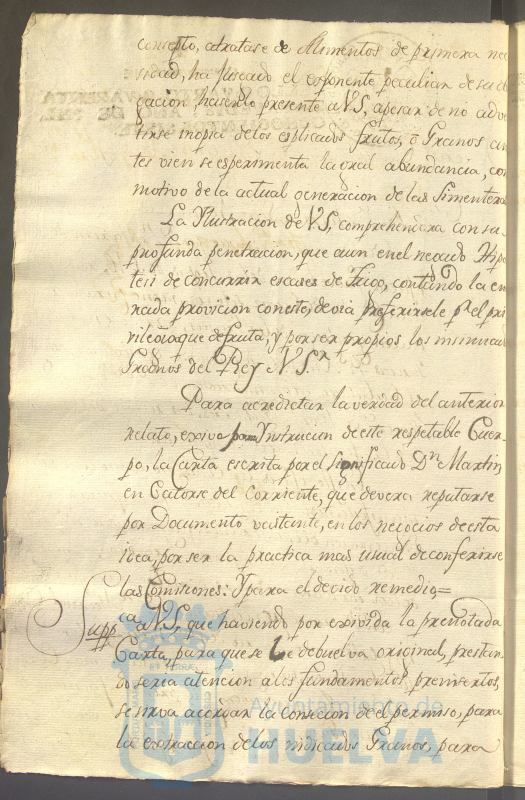 concepto, atratarse de Alimentos de primera nece
sidad, ha juscado el esponente peculiar de su obli
gacion haserlo presente a VS, apesar de no adver
tirse inopia de los esplicados frutos, ô Granos an
tes vien se esperimenta la oral abundancia, con
motivo de la actual generacion de las Simenteras
La Ylustracion de VS, comprehendera con su
profunda penetracion, que aun en el negado Hipo
tesi de concurrir escases de Trigo, contando la em
nada provicion con este, devia preferirsele pr. el pri
vilegio que disfruta, y por ser propios los insinuados
Granos del Rey N. Sr.
Para acredictar la verdad del anterior
relato, exivo para Ynstrucion de este respetable Cuer
po, la Carta escrita por el significado Dn Martin,
en Catorse del Corriente, que devera reputarse
por Documento vastante, en los negocios de esta
idea, por ser la practica mas usual de conferirse
las Comisiones: Y para el devido remedio=
Suppca a VS, que haviendo por exivida la prenotada
Carta, para que se le debuelva original, prestan
do seria atencion a los fundamentos preinsertos,
se sirva acordar la consecion del permiso, para
la extraccion de los indicados Granos, para
Ayuntamiento de
HUELVA